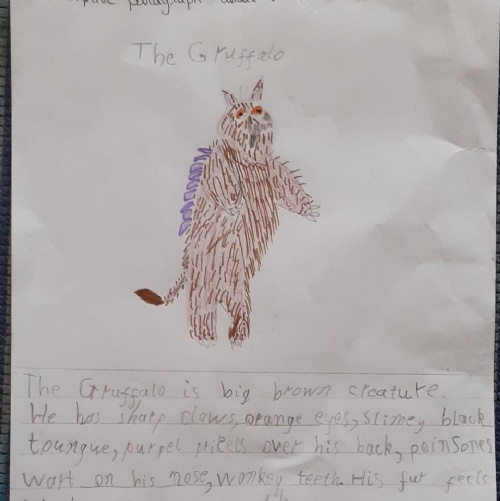 paragraph about
The Gruffalo
The Gruffalo is big brown creature.
He has sharp claws, orange eyes, slimey black
toungue, purpel prikels over his back, poinsones
wart on his nose, wonkey teeth. His fur feels